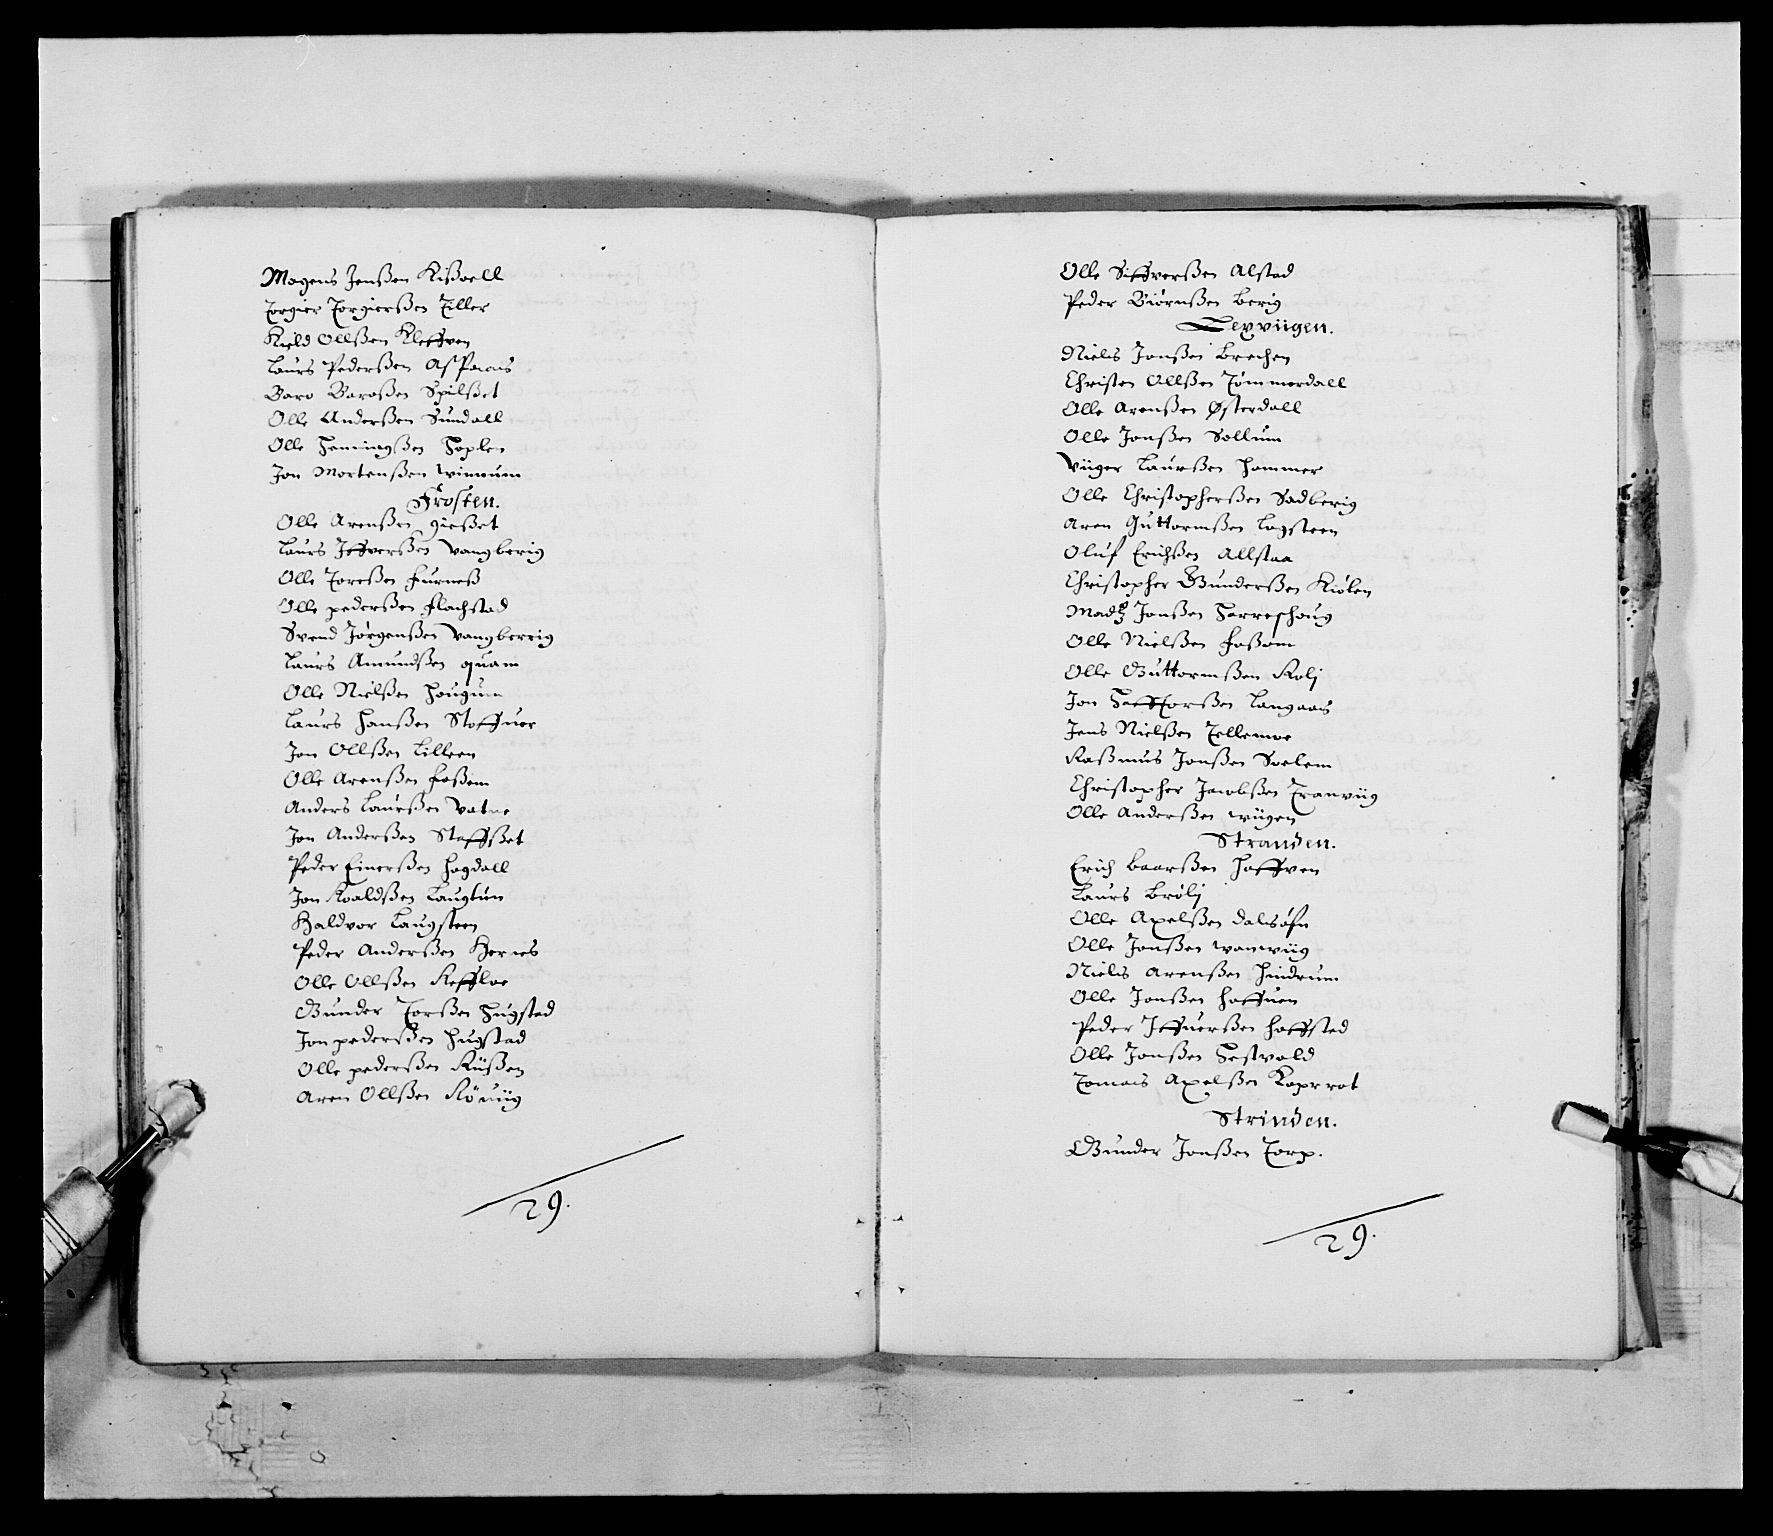 Mogens Jenßen Kißoell
Torgier Torgierßen Tiller
Kield Ollßen Kleffven
Laurs Pederßen Aspaais
Baro Baroßen Spilßet
Olle Anderßen Sundall
Olle Hemingßen Hoplen
Jon Mortenßen Winnum
Frosten.
Olle Arenßen gießet
Laurs Jffverßen Vangberig
Olle Toreßen Furneß
Olle pederßen Flachstad
Svend Jørgenßen Vangberrig
Laurs Amundßen quam
Olle Nielßen Hougum
Laurs Hanßen Stoffuer
Jon Ollßen Lilleen
Olle Arenßen Foßem
Anders Laurßen Vatne
Jon Anderßen Steffßet
Peder Einerßen Hogdall
Jon Roaldßen Laugtun
Haldvor Laugsteen
Peder Anderßen Hernes
Olle Ollßen Reffloe
Gunder Torßen Hugstad
Jon pederßen Hugstad
Olle pederßen Rüßen
Aren Ollßen Röuiig
29.
Olle Siffverßen Alstad
Peder Biørnßen Berig
Lexviigen.
Niels Jonßen Brechen
Christen Ollßen Tømmerdall
Olle Arenßen Østerdall
Olle Jonßen Sollum
Viiger Laurßen Hammer
Olle Christopherßen Sadberig
Aren Guttormßen Logsteen
Oluf Erichßen Allstaa
Christopher Gunderßen Kiølen
Madtz Jonßen Harreshoug
Olle Nielßen Foßom
Olle Guttormßen Rolj
Jon Hafftorßen Langaais
Jens Nielßen Tellemoe
Raßmus Jonßen Soelem
Christopher Jacobßen Tranviig
Olle Anderßen Wiigen
Stranden.
Erich Baarßen Hoffven
Laurs Brølj
Olle Axelßen Dalsøfn
Olle Jonßen Wanwiig
Niels Arenßen Hindrum
Olle Jonßen Hoffuen
Peder Jffuerßen Hoffsted
Olle Jonßen Hestvold
Tomais Axelßen Koprrot
Strinden.
Gunder Jonßen Torp.
29.